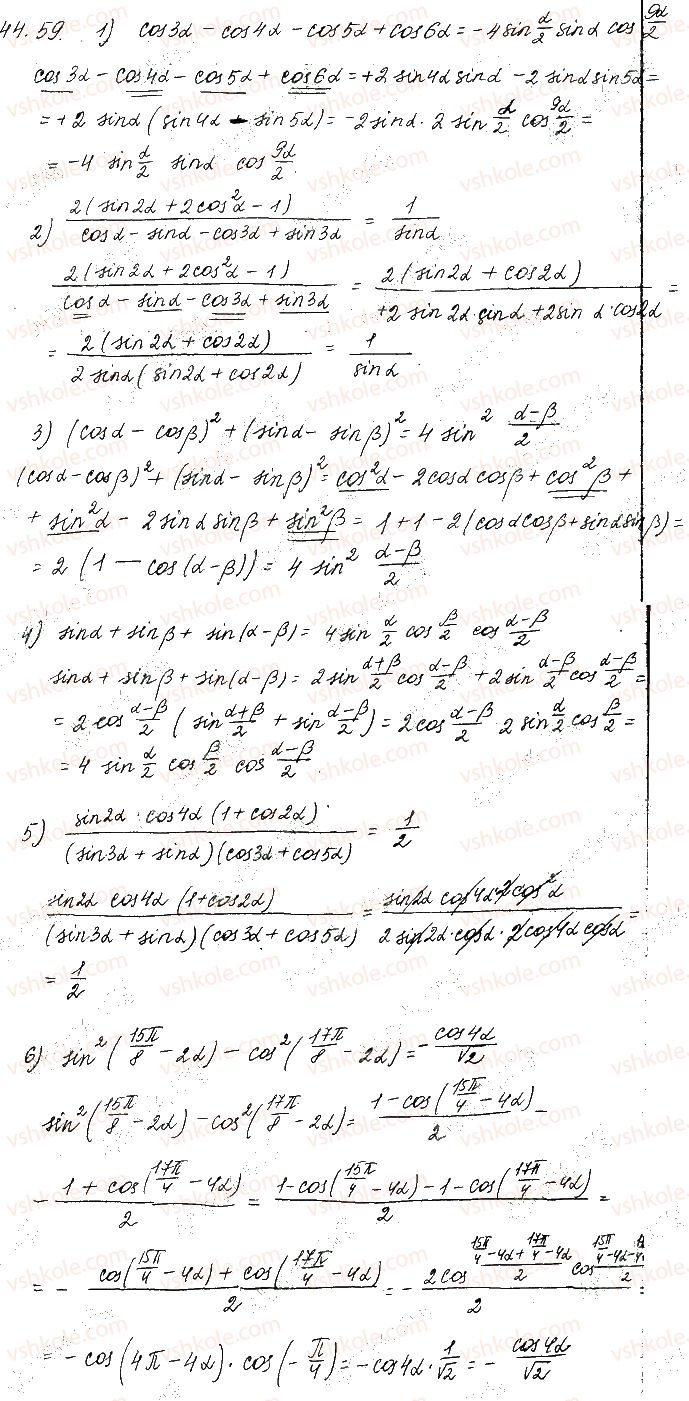 44.59. 1) cos3α − cos4α − cos5α + cos6α = −4 sin α/2 sinα cos 9α/2
cos3α − cos4α − cos5α + cos6α = +2 sin4α sinα − 2 sinα sin5α =
= +2 sinα (sin4α − sin5α) = −2 sinα · 2 sin α/2 cos 9α/2 =
= −4 sin α/2 sinα cos 9α/2
2) 2(sin2α + 2cos²α − 1) / (cosα − sinα − cos3α + sin3α) = 1/sinα
2(sin2α + 2cos²α − 1) / (cosα − sinα − cos3α + sin3α) = 2(sin2α + cos2α) / (+2 sin2α sinα + 2sinα · cos2α) =
= 2(sin2α + cos2α) / (2 sinα (sin2α + cos2α)) = 1/sinα
3) (cosα − cosβ)² + (sinα − sinβ)² = 4 sin² (α−β)/2
(cosα − cosβ)² + (sinα − sinβ)² = cos²α − 2cosα cosβ + cos²β +
+ sin²α − 2 sinα sinβ + sin²β = 1 + 1 − 2(cosα cosβ + sinα sinβ) =
= 2 (1 − cos(α−β)) = 4 sin² (α−β)/2
4) sinα + sinβ + sin(α−β) = 4 sin α/2 cos β/2 cos (α−β)/2
sinα + sinβ + sin(α−β) = 2 sin (α+β)/2 cos (α−β)/2 + 2 sin (α−β)/2 cos (α−β)/2 =
= 2 cos (α−β)/2 (sin (α+β)/2 + sin (α−β)/2) = 2cos (α−β)/2 2 sin α/2 cos β/2 =
= 4 sin α/2 cos β/2 cos (α−β)/2
5) sin2α · cos4α (1 + cos2α) / ((sin3α + sinα)(cos3α + cos5α)) = 1/2
sin2α cos4α (1+cos2α) / ((sin3α + sinα)(cos3α + cos5α)) = sin2α cos4α 2 cos²α / (2 sin2α · cosα · 2 cos4α cosα) =
= 1/2
6) sin² (15π/8 − 2α) − cos² (17π/8 − 2α) = −cos4α/√2
sin² (15π/8 − 2α) − cos² (17π/8 − 2α) = (1 − cos(15π/4 − 4α))/2 −
− (1 + cos(17π/4 − 4α))/2 = (1 − cos(15π/4 − 4α) − 1 − cos(17π/4 − 4α))/2 =
= − (cos(15π/4 − 4α) + cos(17π/4 − 4α))/2 = − (2cos (15π/4 − 4α + 17π/4 − 4α)/2 cos (15π/4 − 4α −)/2)/2 =
= −cos(4π − 4α) · cos(−π/4) = −cos4α · 1/√2 = − cos4α/√2